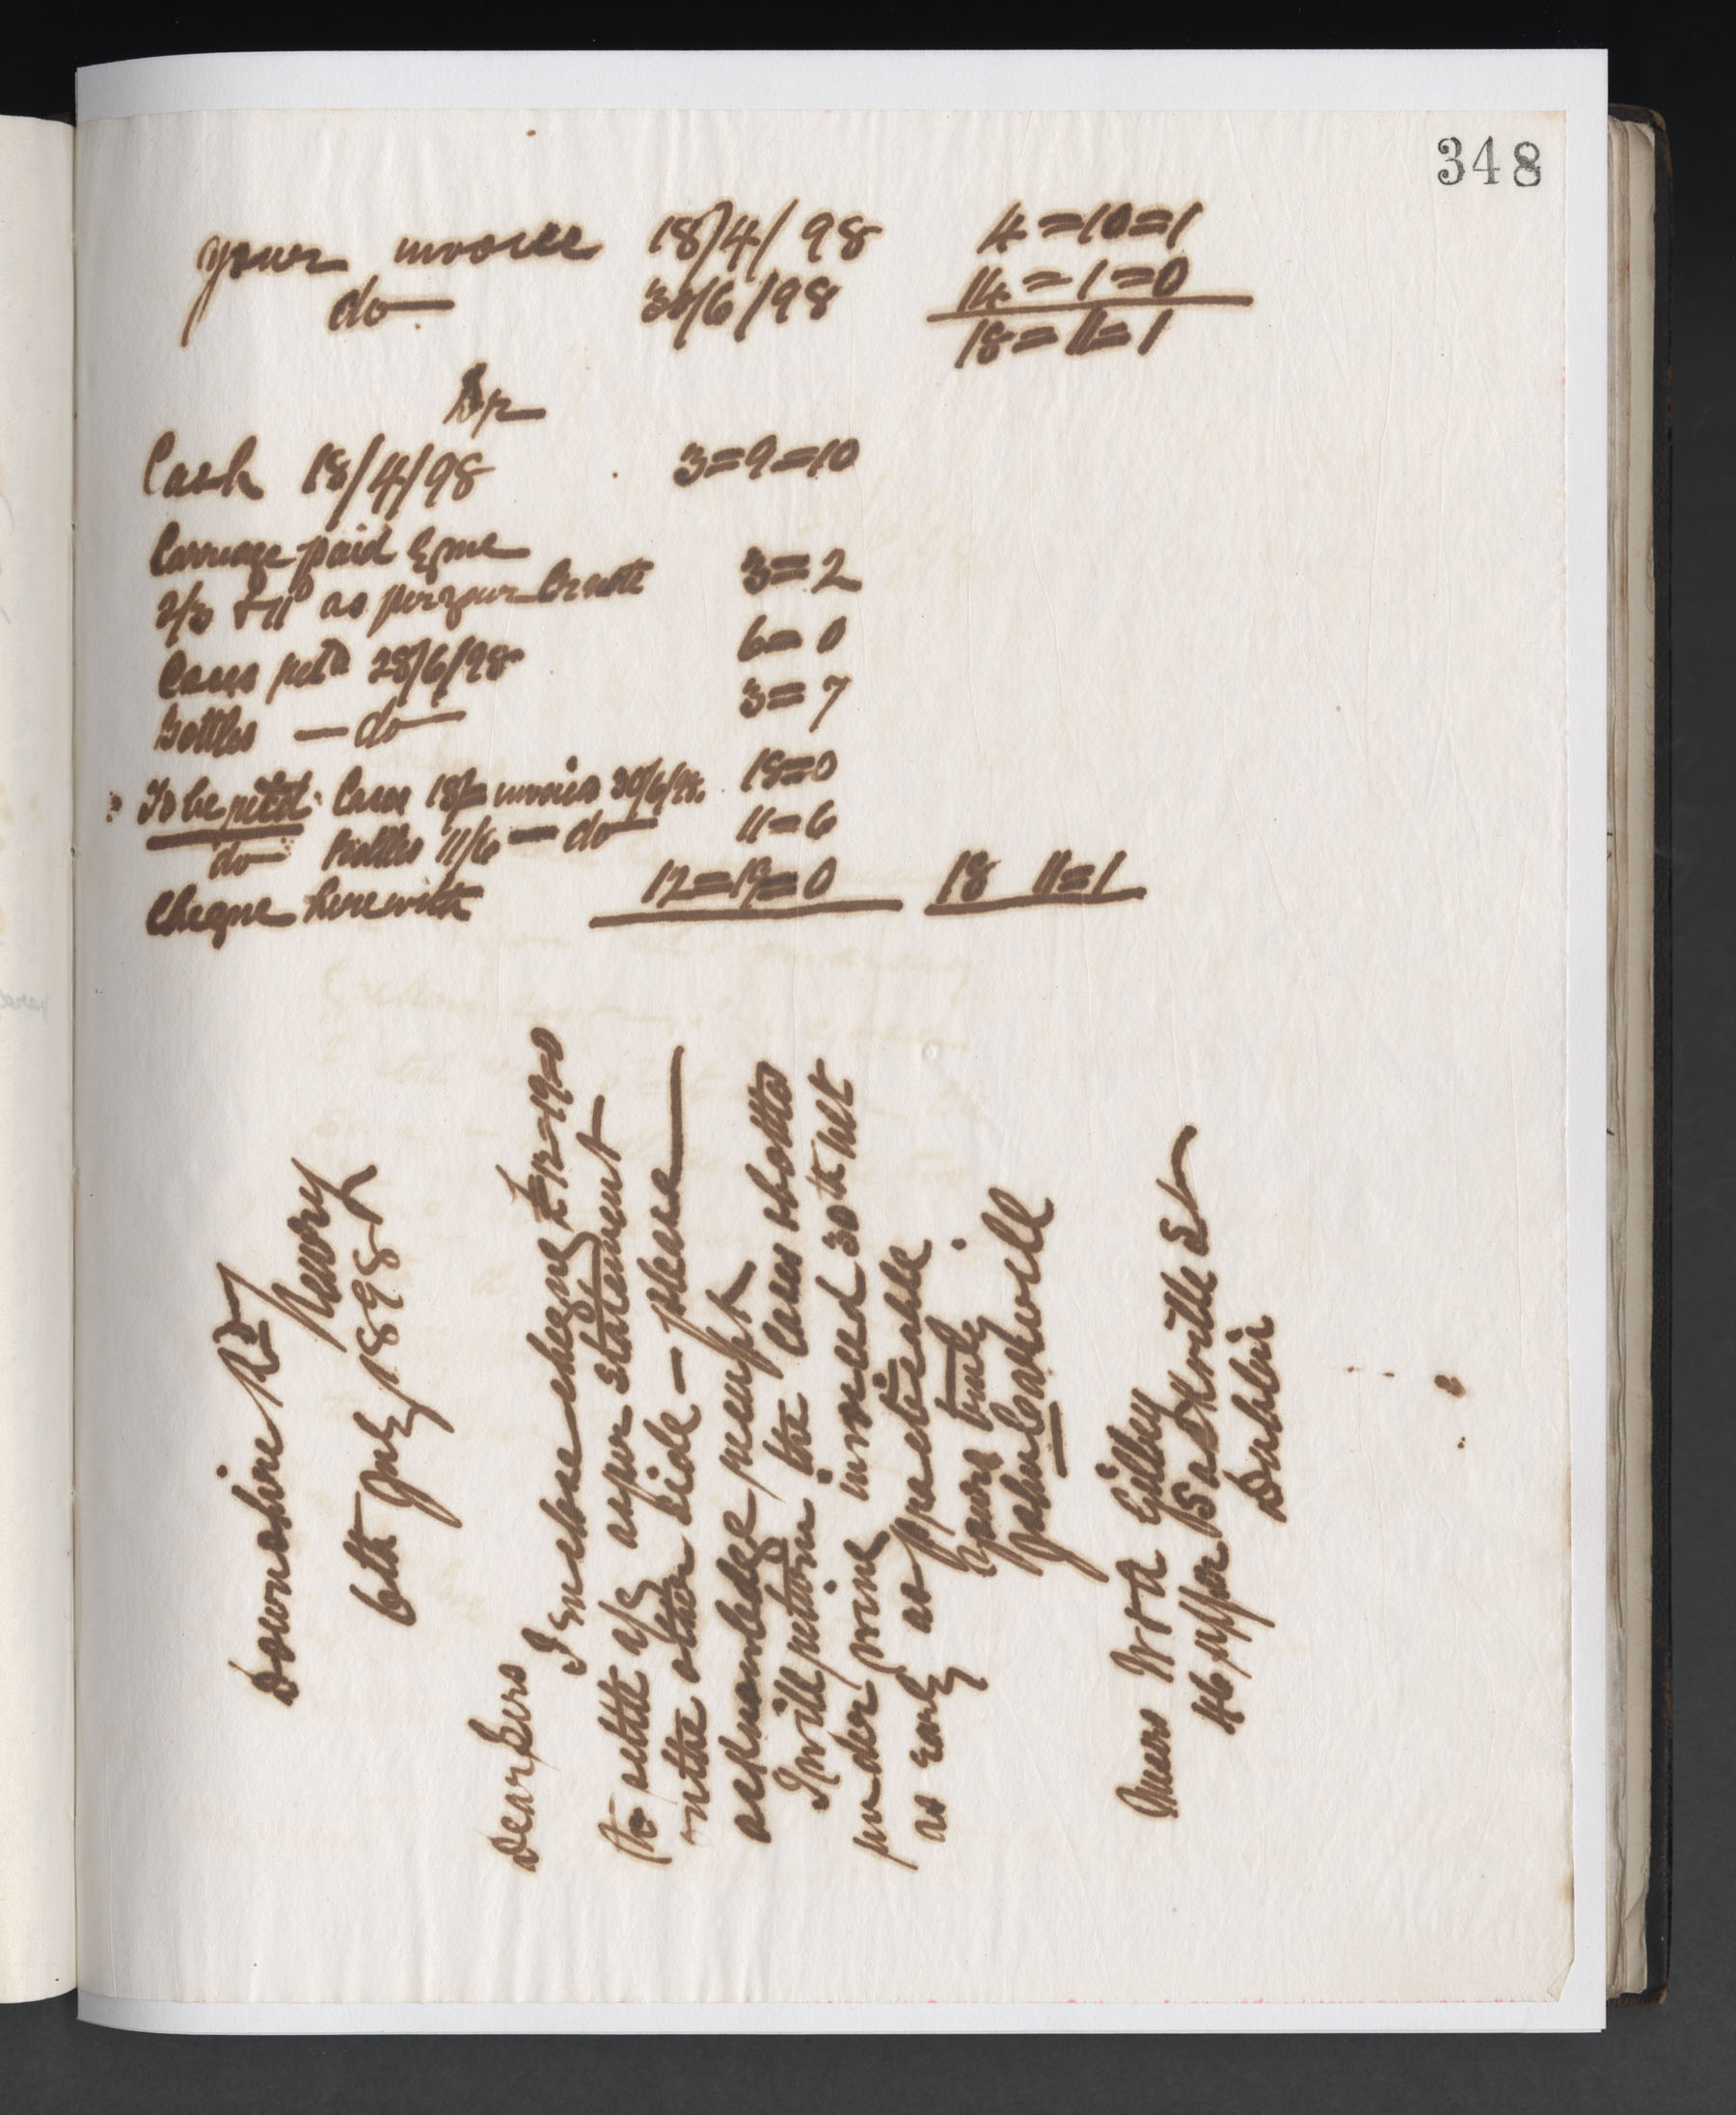 348
your invoice 18/4/98 4=10=1
do 30/6/98 14=1=0
18=11=1
Dr
Cash 18/4/98 3=9=10
Carriage paid by me
2/3 & 11d as per your Cr note 3=2
Cases retd 28/6/98 6=0
Bottles — do 3=7
To be retd Cases 18/= invoice 30/6/98. 18=0
do Bottles 11/6 — do 11=6
Cheque herewith 12=19=0 18 11=1
Downshire Rd
Newry
6th July 1898
Dear Sirs
I enclose cheque £12=19=0
to settle a/c as per statement
on the other side — please
acknowledge receipt
I will return the cases & bottles
under mine invoiced 30th ult
as early as practicable
Yours truly
John Cartwell
Messrs W & A Gilbey
46 upper Sackville St
Dublin